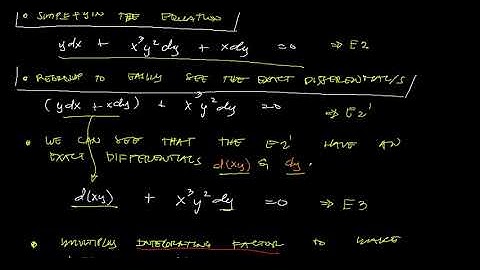 • SIMPLIFYIN THE EQUATION
ydx + x³y²dy + xdy = 0 ⇒ E2
• REGROUP TO EASILY SEE THE EXACT DIFFERENTIAL/S
(ydx + xdy) + x³y²dy = 0 ⇒ E2'
• WE CAN SEE THAT THE E2' HAVE AN
EXACT DIFFERENTIALS d(xy) & dy.
d(xy) + x³y²dy = 0 ⇒ E3
• MULTIPLY INTEGRATING FACTOR TO MAKE